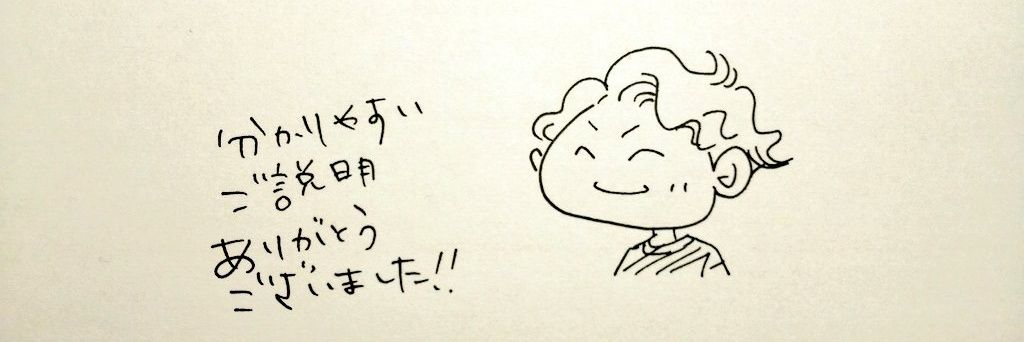 わかりやすい
ご説明
ありがとう
ございました!!